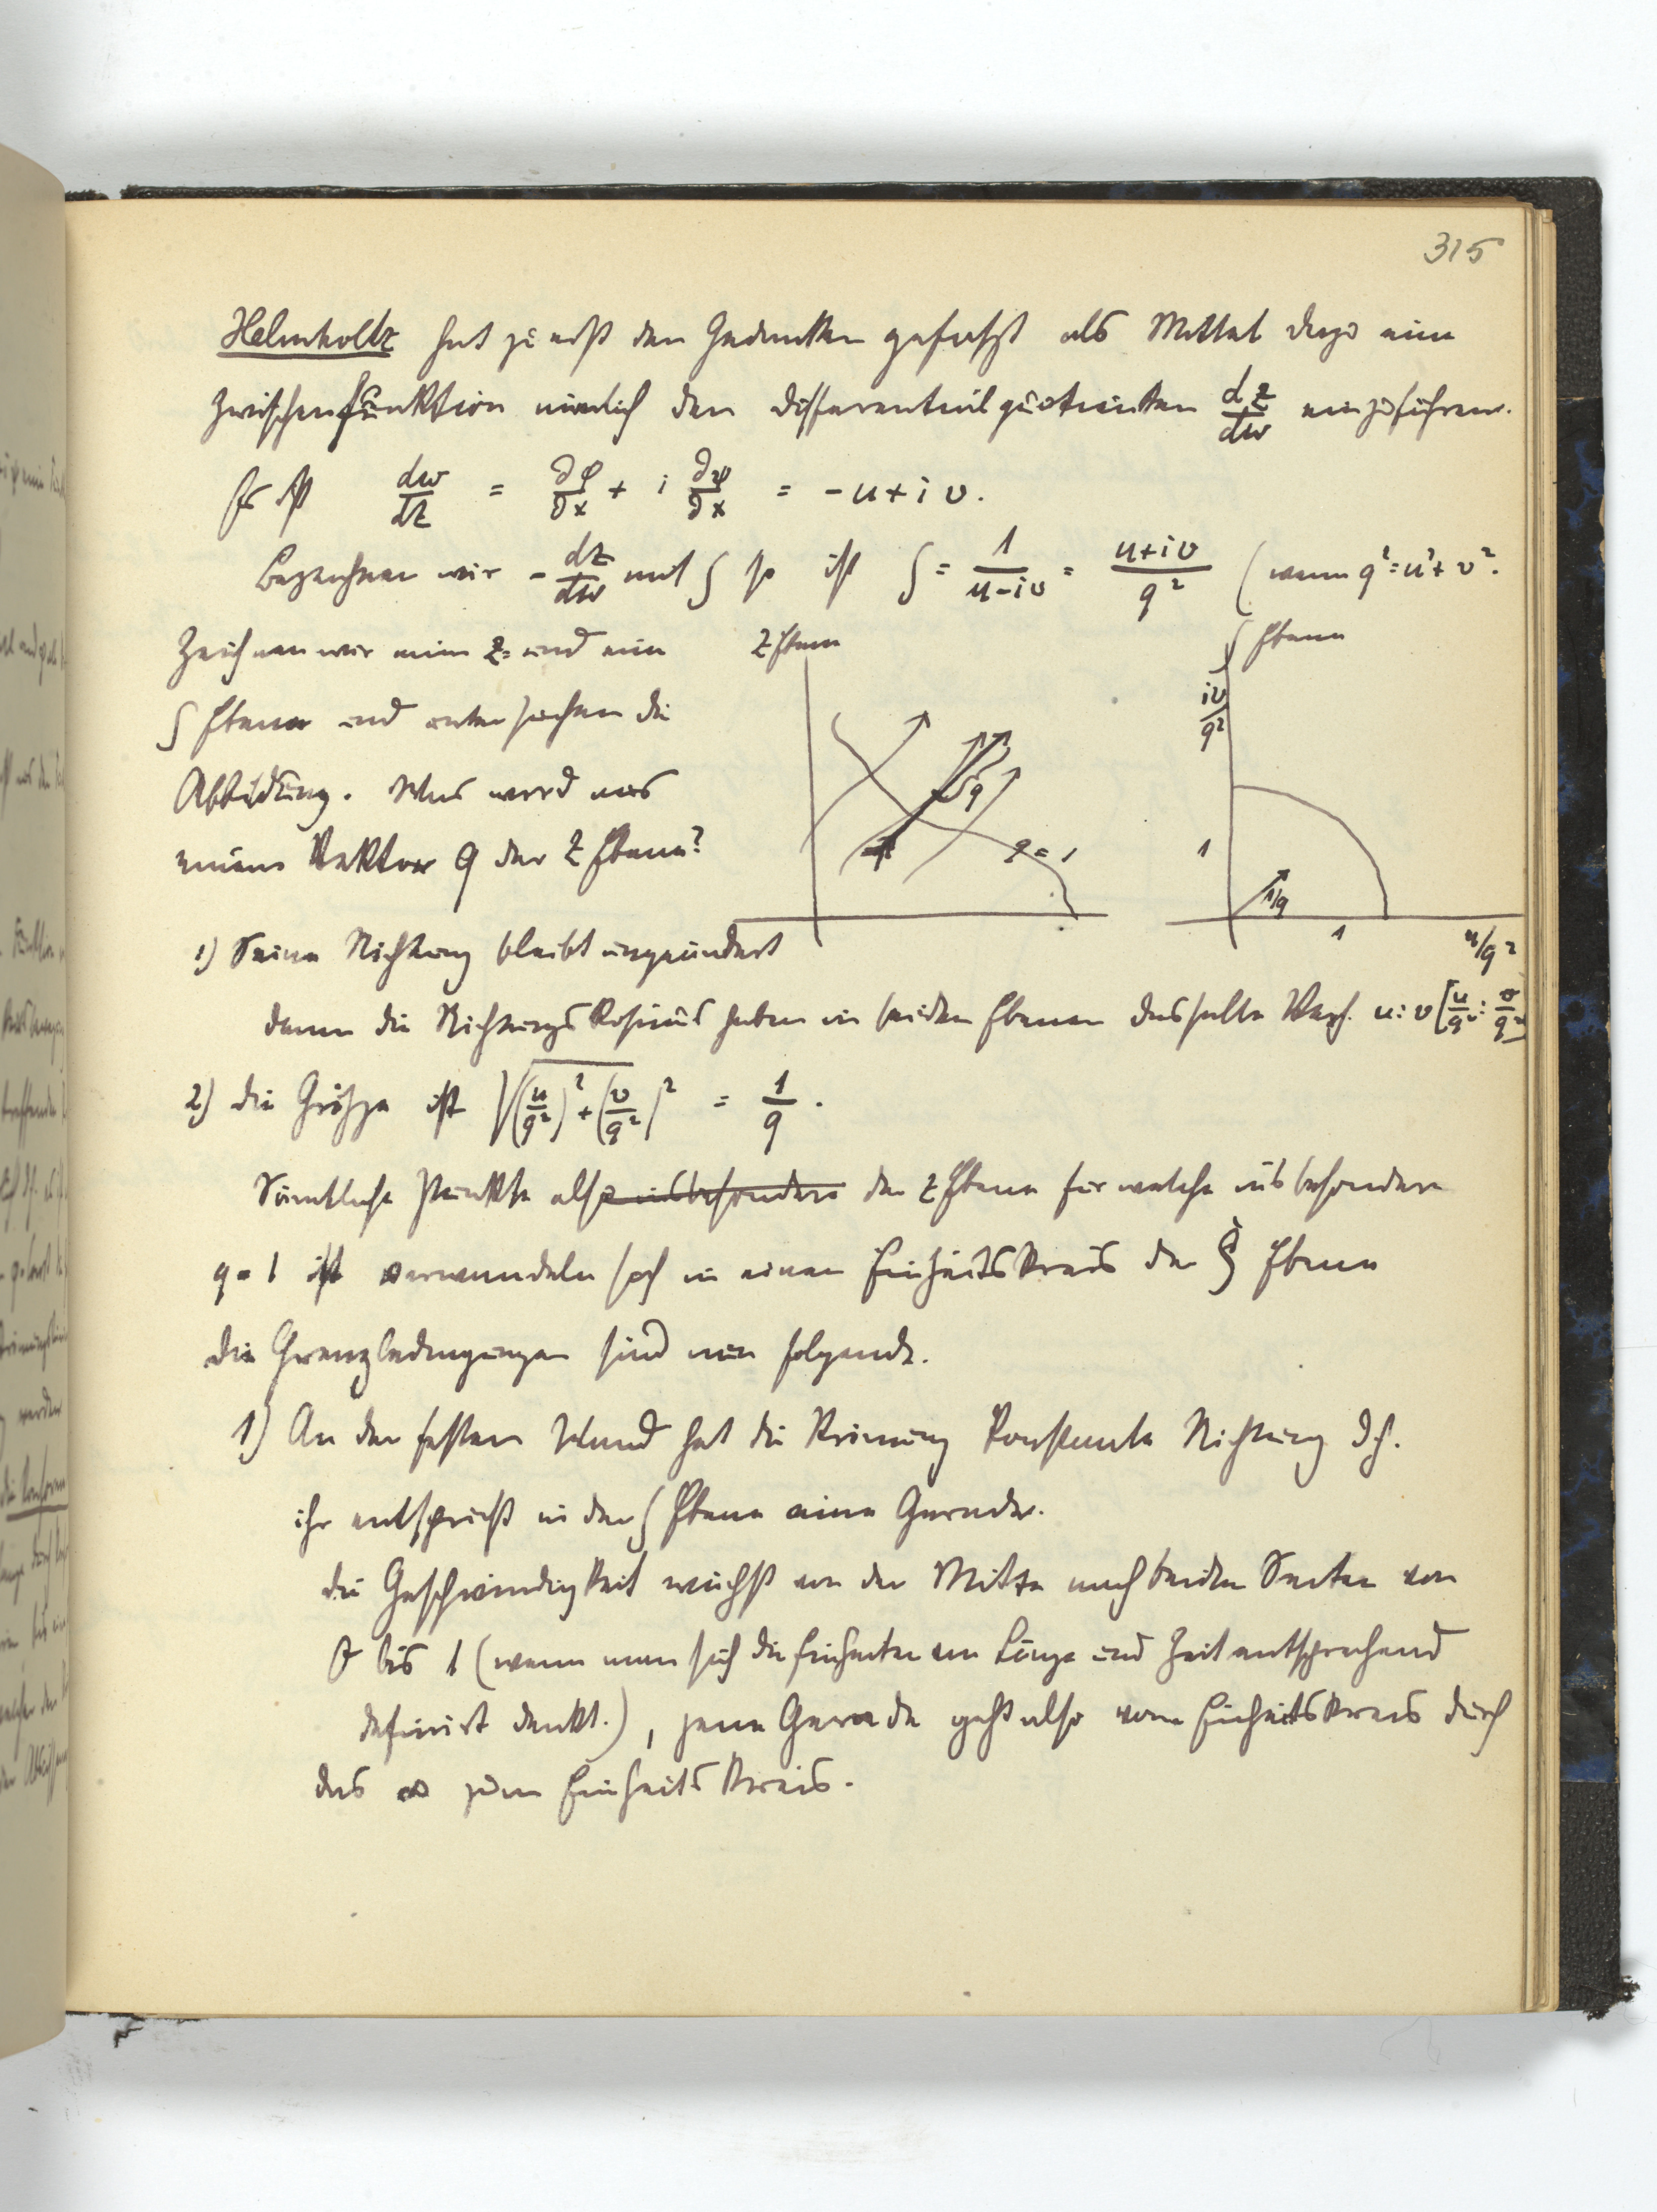 315
Helmholtz hat zuerst den Gedanken gefaßt als Mittel dazu eine
Zwischenfunktion nämlich den Differentialquotienten dz/dw einzuführen.
Es ist dw/dz = ∂φ/∂x + i ∂ψ/∂x = -u + i v.
Bezeichnen wir - dz/dw mit ζ so ist ζ = 1/(u-iv) = (u+iv)/q² (wenn q² = u² + v².
Zeichnen wir eine z- und eine
ζ Ebene und untersuchen die
Abbildung. Was wird aus
einem Vektor q der z Ebene?
z Ebene
q
q = 1
ζ Ebene
iv/q²
1
1/q
1
u/q²
1) Seine Richtung bleibt ungeändert
denn die Richtungskosinus haben in beiden Ebenen dasselbe Verh. u:v [u/q² : v/q²]
2) die Größe ist √((u/q²)² + (v/q²)²) = 1/q.
Sämtliche Punkte also insbesondere der z Ebene für welche insbesondere
q = 1 ist verwandeln sich in einen Einheitskreis der ζ Ebene
Die Grenzbedingungen sind nun folgende.
1) An der festen Wand hat die Strömung konstante Richtung d.h.
ihr entspricht in der ζ Ebene eine Gerade.
Die Geschwindigkeit wächst von der Mitte nach beiden Seiten von
0 bis 1 (wenn man sich die Einheiten von Länge und Zeit entsprechend
definirt denkt.), jene Gerade geht also vom Einheitskreis durch
das ∞ zum Einheitskreis.